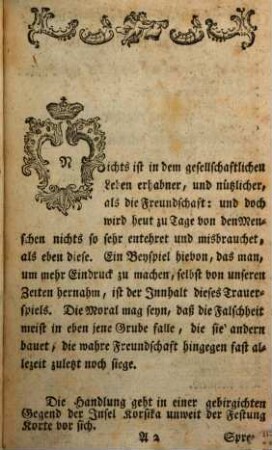 Nichts ist in dem gesellschaftlichen
Leben erhabner, und nützlicher,
als die Freundschaft: und doch
wird heut zu Tage von den Men-
schen nichts so sehr entehret und misbrauchet,
als eben diese. Ein Beyspiel hievon, das man,
um mehr Eindruck zu machen, selbst von unseren
Zeiten hernahm, ist der Innhalt dieses Trauer-
spiels. Die Moral mag seyn, daß die Falschheit
meist in eben jene Grube falle, die sie andern
bauet, die wahre Freundschaft hingegen fast al-
lezeit zuletzt noch siege.
Die Handlung geht in einer gebirgichten
Gegend der Insel Korsika unweit der Festung
Korte vor sich.
A 2 Spre-